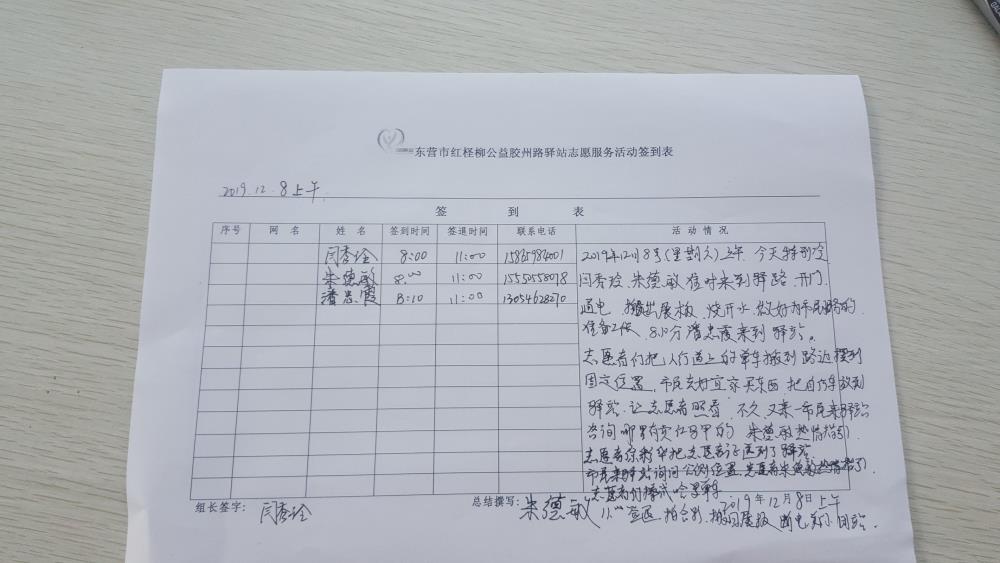 东营市红柽柳公益胶州路驿站志愿服务活动签到表
2019.12.8上午
签 到 表
序号 网 名 姓 名 签到时间 签退时间 联系电话 活 动 情 况
闫秀玲 8:00 11:00
朱德敏 8:00 11:00 15550558078
潘忠霞 8:10 11:00 13054628270
2019年12月8号(星期六)上午 今天特别冷
闫秀玲 朱德敏准时来到驿路 开门
通电 搬出展板 烧开水 做好为市民服务的
准备工作 8.10分潘忠霞来到驿站。
志愿者们把人行道上的单车搬到路边摆到
固定位置 市民去好宜家买东西 把自行车放到
驿站 让志愿者照看 不久又来一市民来驿站
咨询哪里有卖 的 朱德敏热情指引
志愿者 把志愿者证送到了驿站
市民来驿站询问公厕位置 志愿者朱德敏热情指引
志愿者们擦拭 单车
组长签字: 闫秀玲 总结撰写: 朱德敏 2019年12月8日上午
11.00签退 拍合影 搬回展板 断电关门 回站.